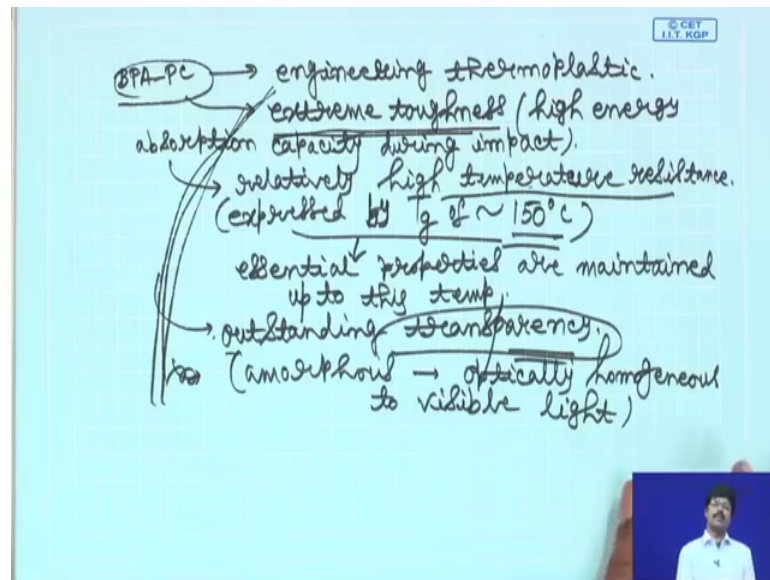 © CET
I.I.T. KGP
BPA-PC → engineering thermoplastic.
→ extreme toughness (high energy
absorption capacity during impact).
→ relatively high temperature resistance.
(expressed by Tg of ~ 150°C)
essential properties are maintained
up to this temp.
→ outstanding transparency.
(amorphous → optically homogeneous
to visible light)